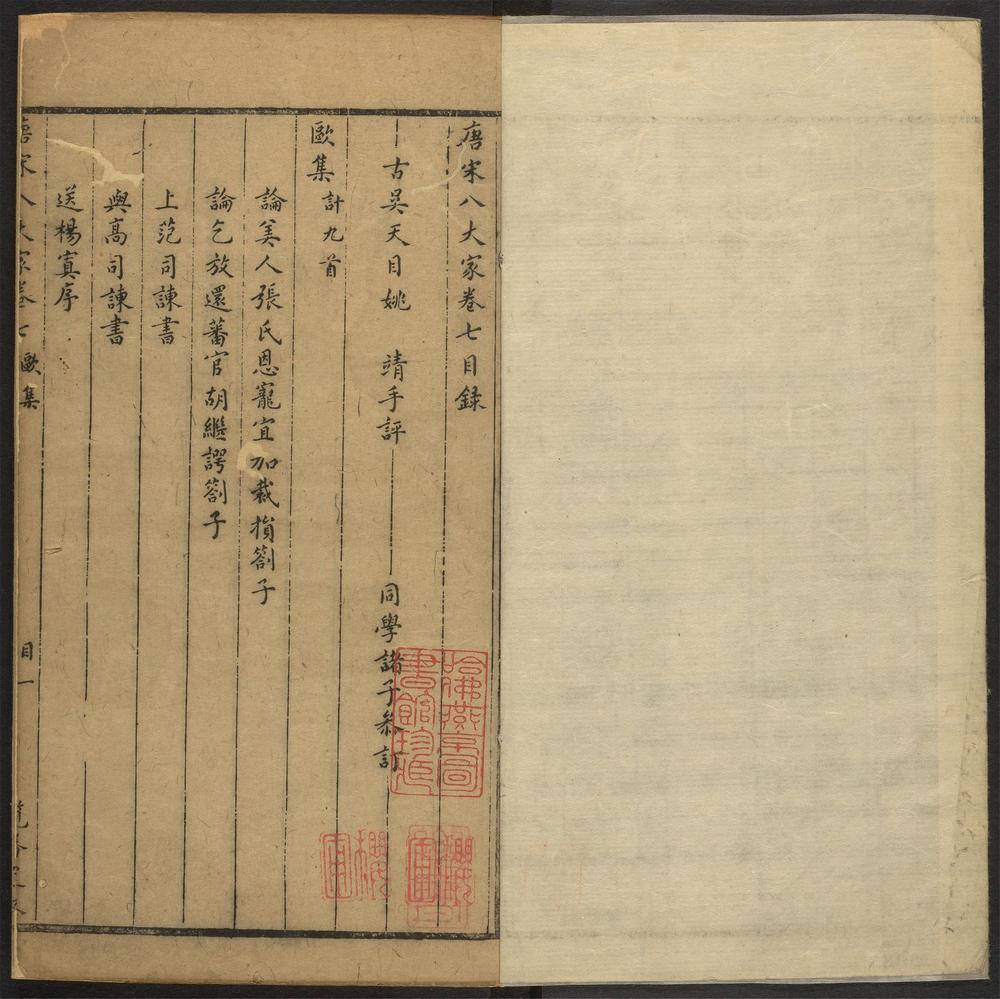 唐宋八大家卷七目録
古吴天目姚 靖手評 同學諸子叅訂
歐集計九首
論美人張氏恩寵宜加裁損劄子
論乞放還蕃官胡繼諤劄子
上范司諫書
與高司諫書
送楊寘序
唐宋八大家卷七 歐集 目一
哈佛燕京圖書館珍藏